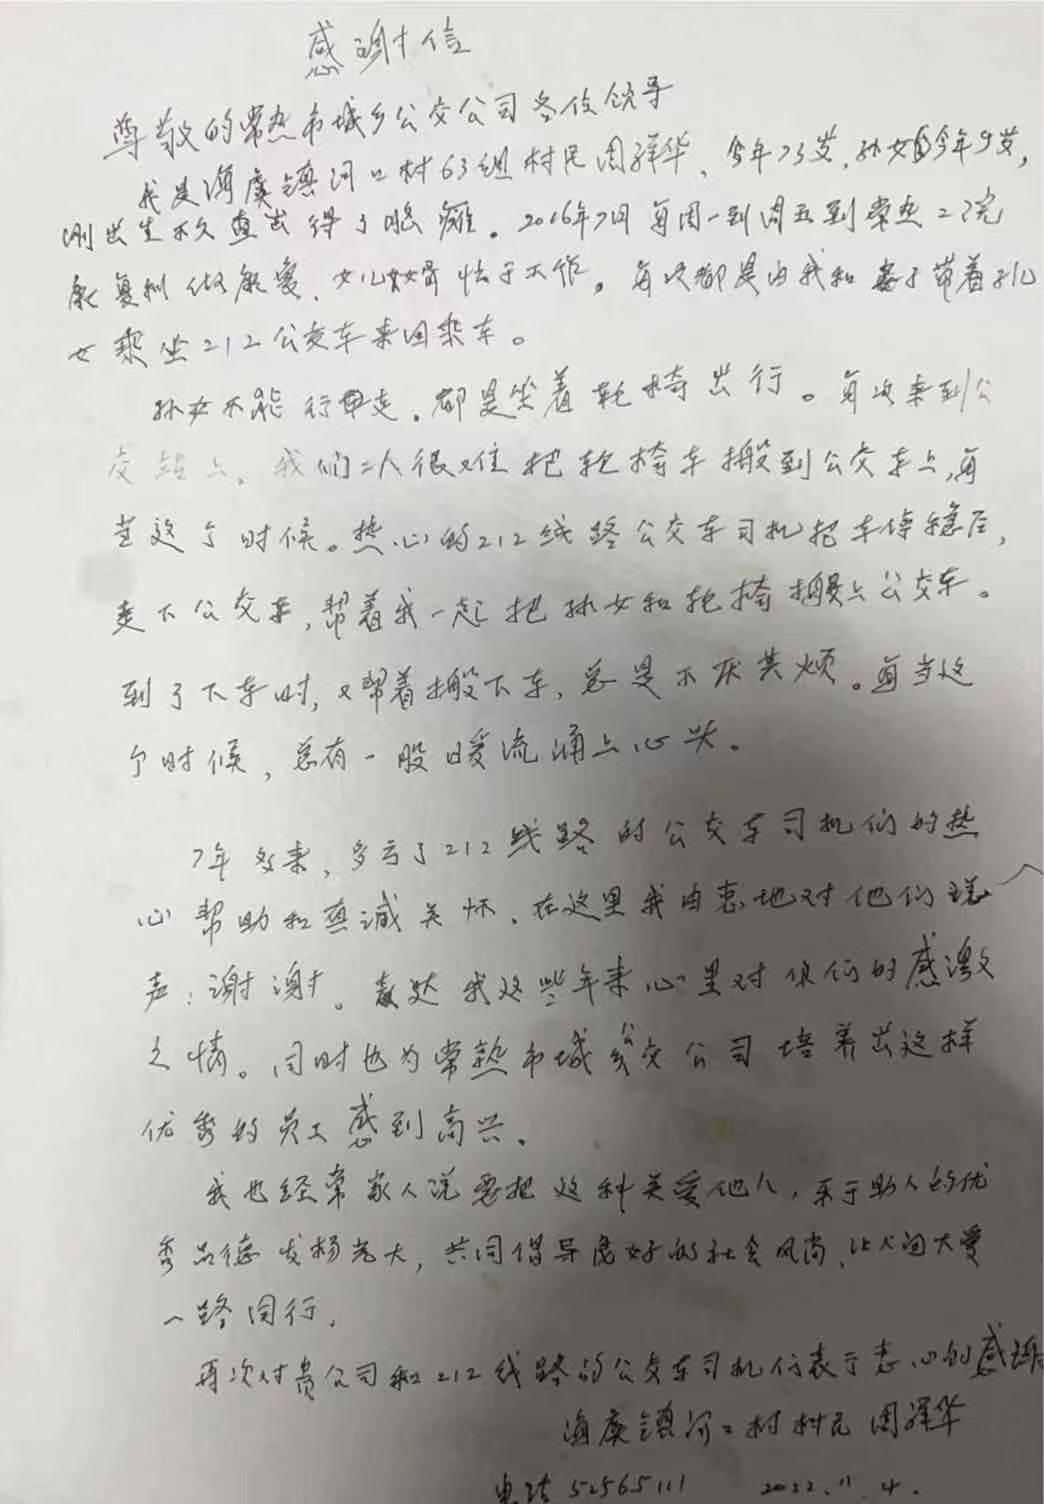 感谢信
尊敬的常热市城乡公交公司各位领导
我是海虞镇河口村63组村民周祥华、今年73岁,孙女今年9岁,
刚出生不久查出得了脑瘫。2016年7月每周一到周五到常热二院
康复科做康复、女儿女婿忙于工作。每次都是由我和妻子带着孙
女乘坐212公交车来回乘车。
孙女不能行走,都是坐着轮椅出行。每次来到公
交站上,我们二人很难把轮椅车搬到公交车上,每
当这个时候。热心的212线路公交车司机把车停稳后,
走下公交车,帮着我一起把孙女和轮椅搬上公交车。
到了下车时,又帮着搬下车,总是不厌其烦。每当这
个时候,总有一股暖流涌上心头。
7年多来,多亏了212线路的公交车司机们的热
心帮助和真诚关怀,在这里我由衷地对他们说
声:谢谢。表达我这些年来心里对他们的感激
之情。同时也为常熟市城公交公司培养出这样
优秀的员工感到高兴。
我也经常家人说要把这种关爱他人,乐于助人的优
秀品德发扬光大,共同倡导良好的社会风尚、让人间大爱
一路同行,
再次对贵公司和212线路的公交车司机们表示衷心的感谢
海虞镇河口村村民 周祥华
电话 52565111 2022.11.4.